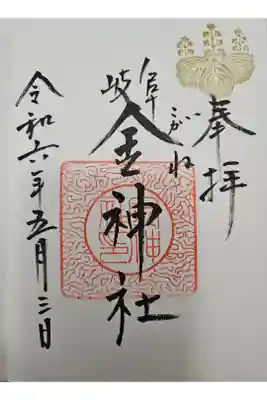 奉拝
こがね
岐阜
金神社
令和六年五月三日